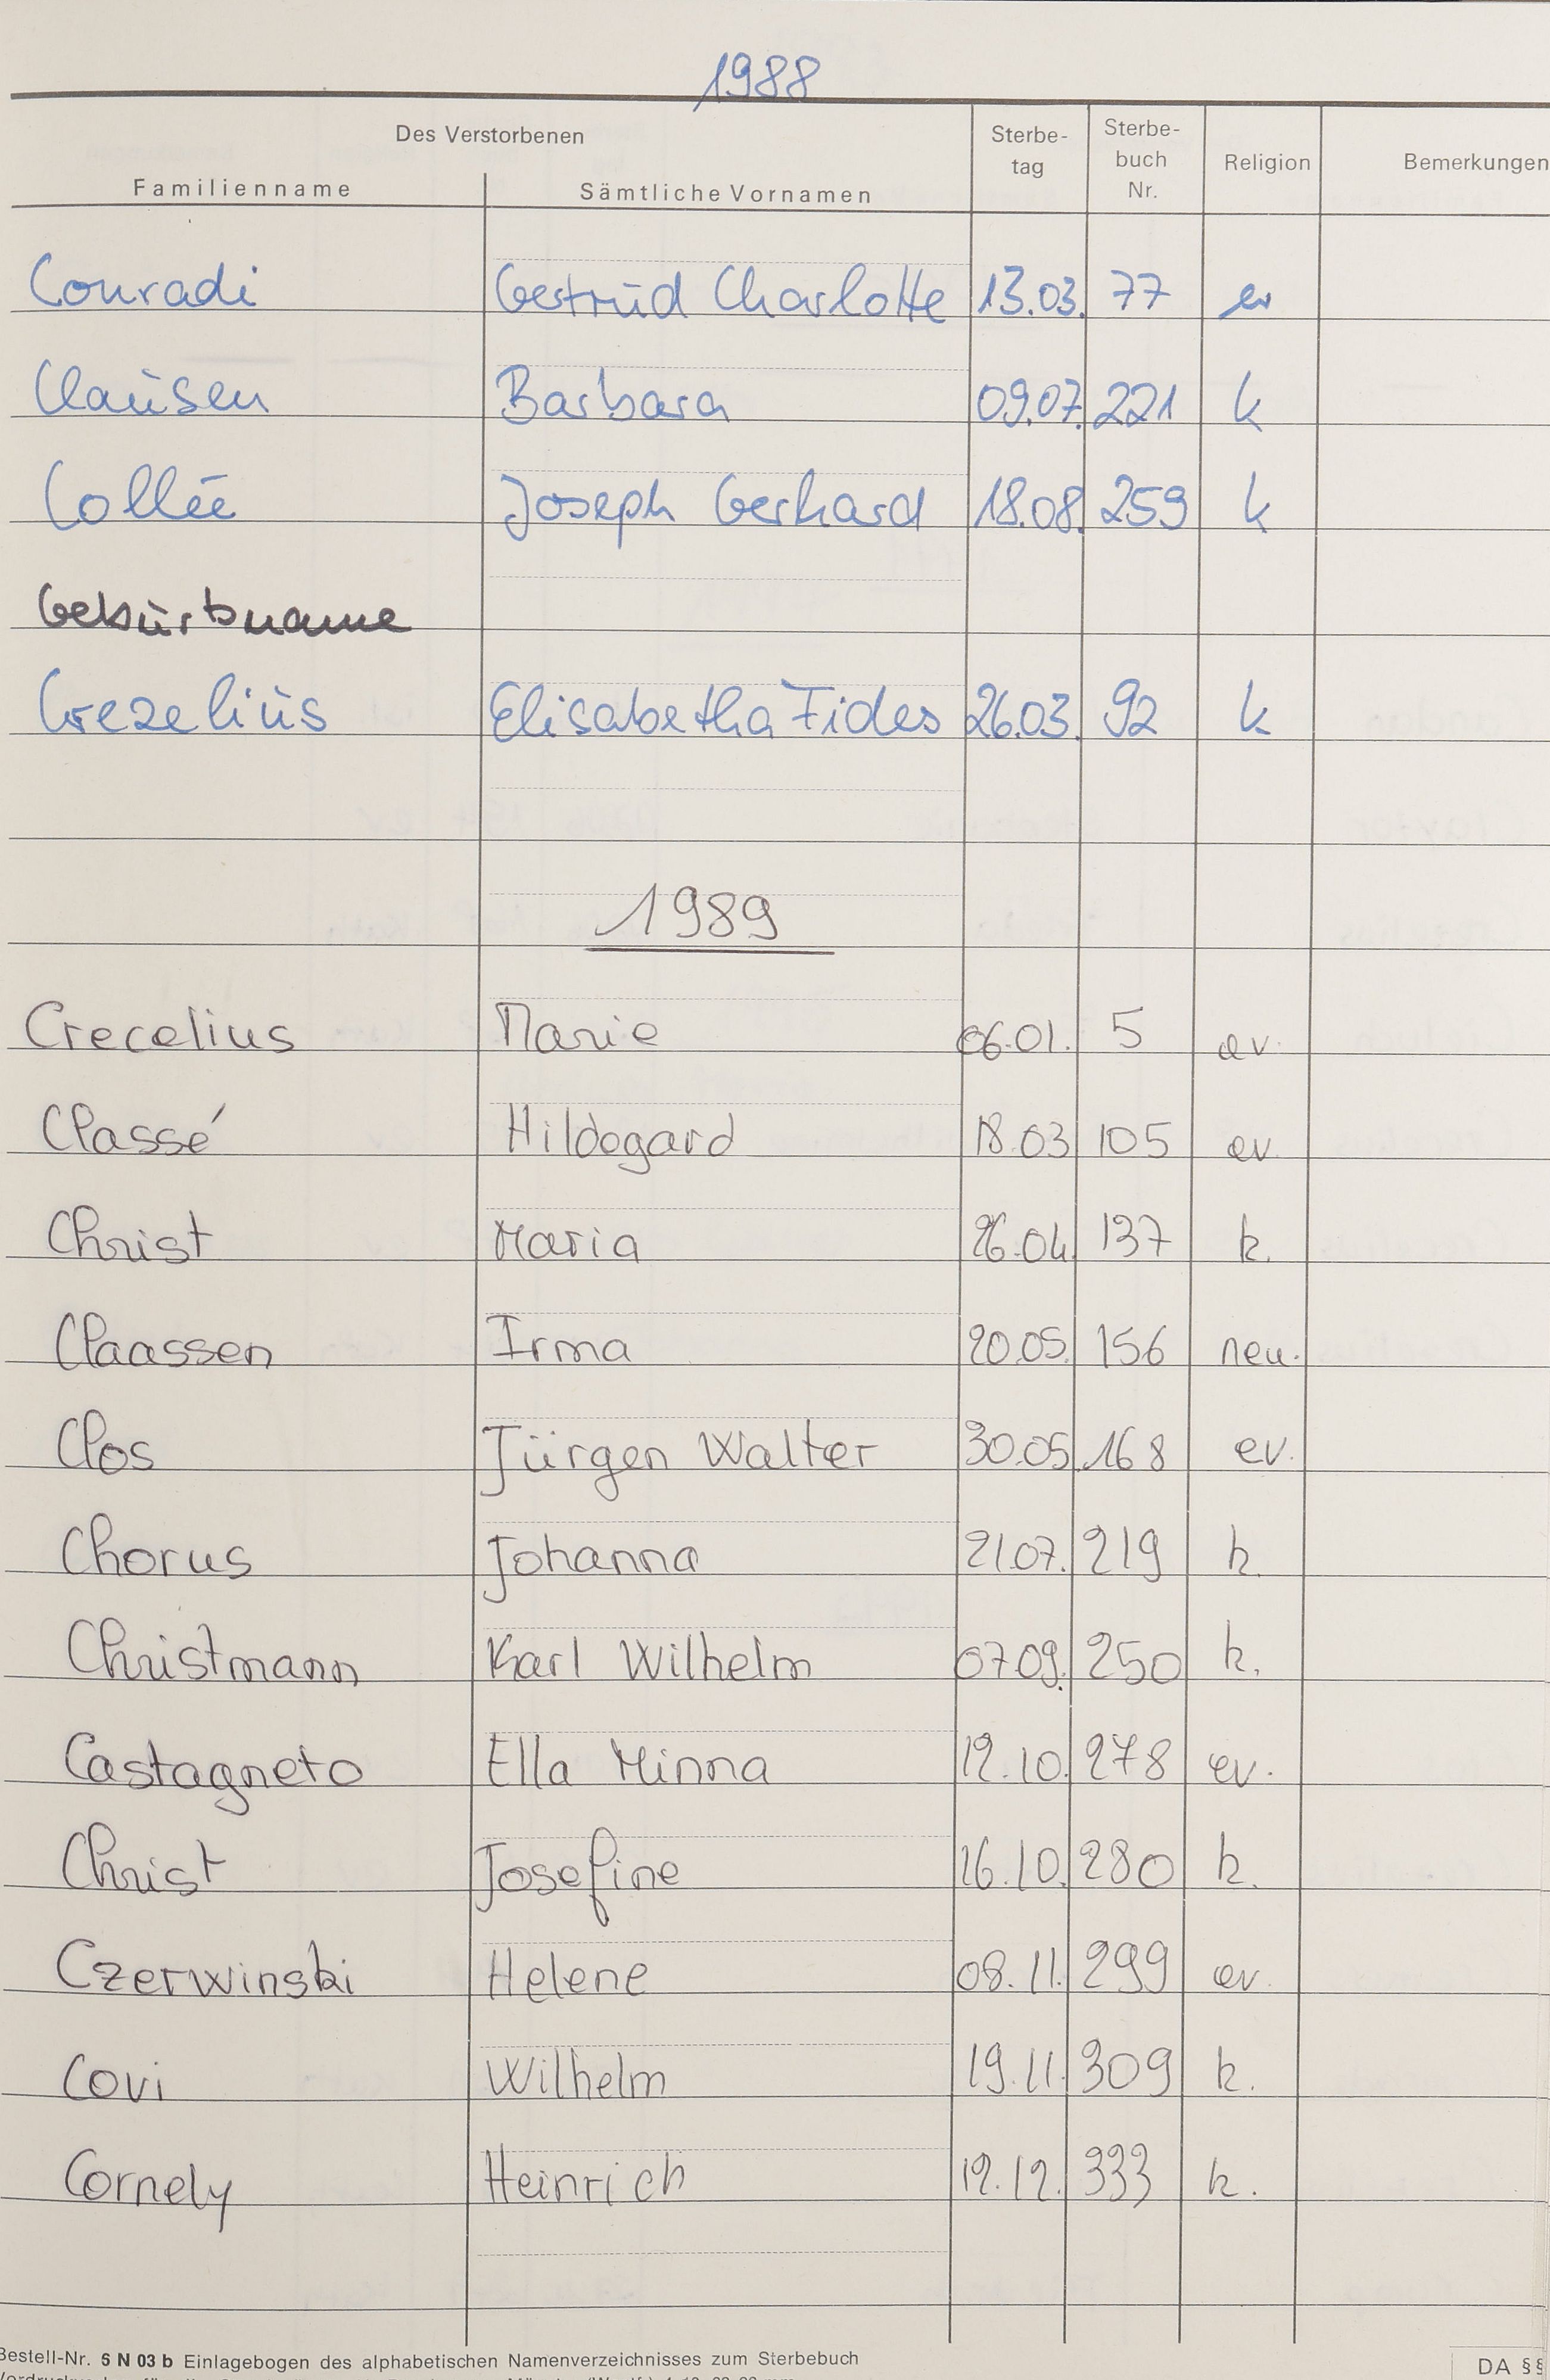 1988
Des Verstorbenen Sterbe- tag Sterbe- buch Nr. Religion Bemerkungen
Familienname Sämtliche Vornamen
Conradi Gertrud Charlotte 13.03. 77 ev
Clausen Barbara 09.07. 221 k
Collée Joseph Gerhard 18.08. 259 k
Geburtsname
Crezelius Elisabetha Fides 26.03. 92 k
1989
Crecelius Marie 06.01. 5 ev.
Classé Hildegard 18.03 105 ev.
Christ Maria 26.04. 137 k.
Claassen Irma 20.05. 156 neu.
Clos Jürgen Walter 30.05. 168 ev.
Chorus Johanna 21.07. 219 k.
Christmann Karl Wilhelm 07.09. 250 k.
Castagneto Ella Minna 12.10. 278 ev.
Christ Josefine 16.10. 280 k.
Czerwinski Helene 08.11. 299 ev.
Covi Wilhelm 19.11. 309 k.
Cornely Heinrich 12.12. 333 k.
Bestell-Nr. 5 N 03 b Einlagebogen des alphabetischen Namenverzeichnisses zum Sterbebuch
DA §§